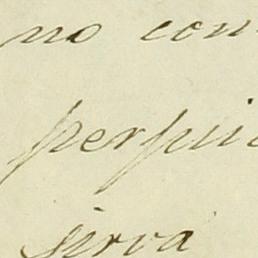 no con
perjui
sirva